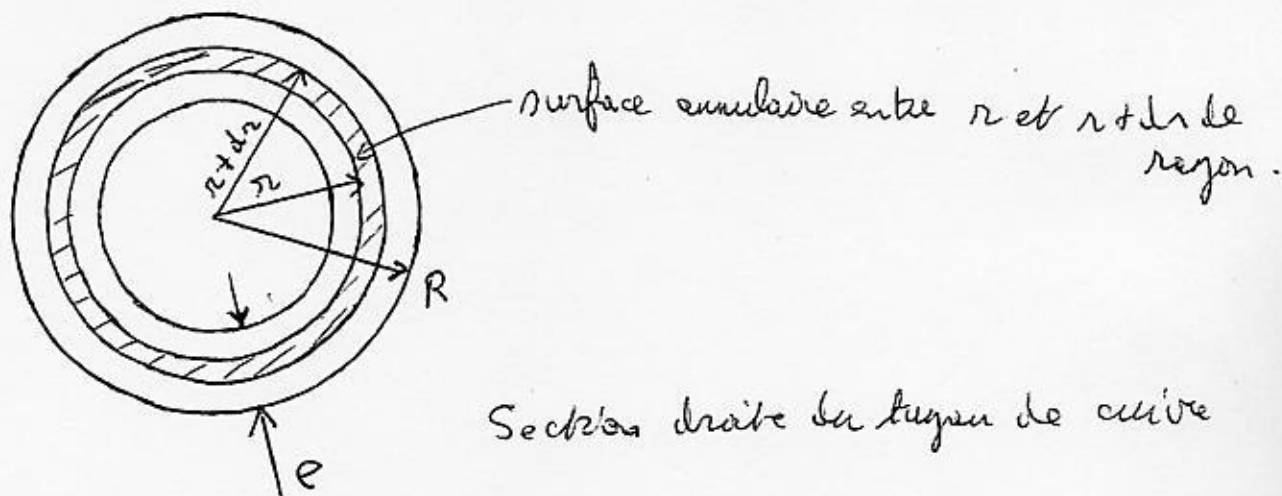 surface annulaire entre r et r+dr de
rayon.
r+dr
r
R
Section droite du tuyau de cuivre
e